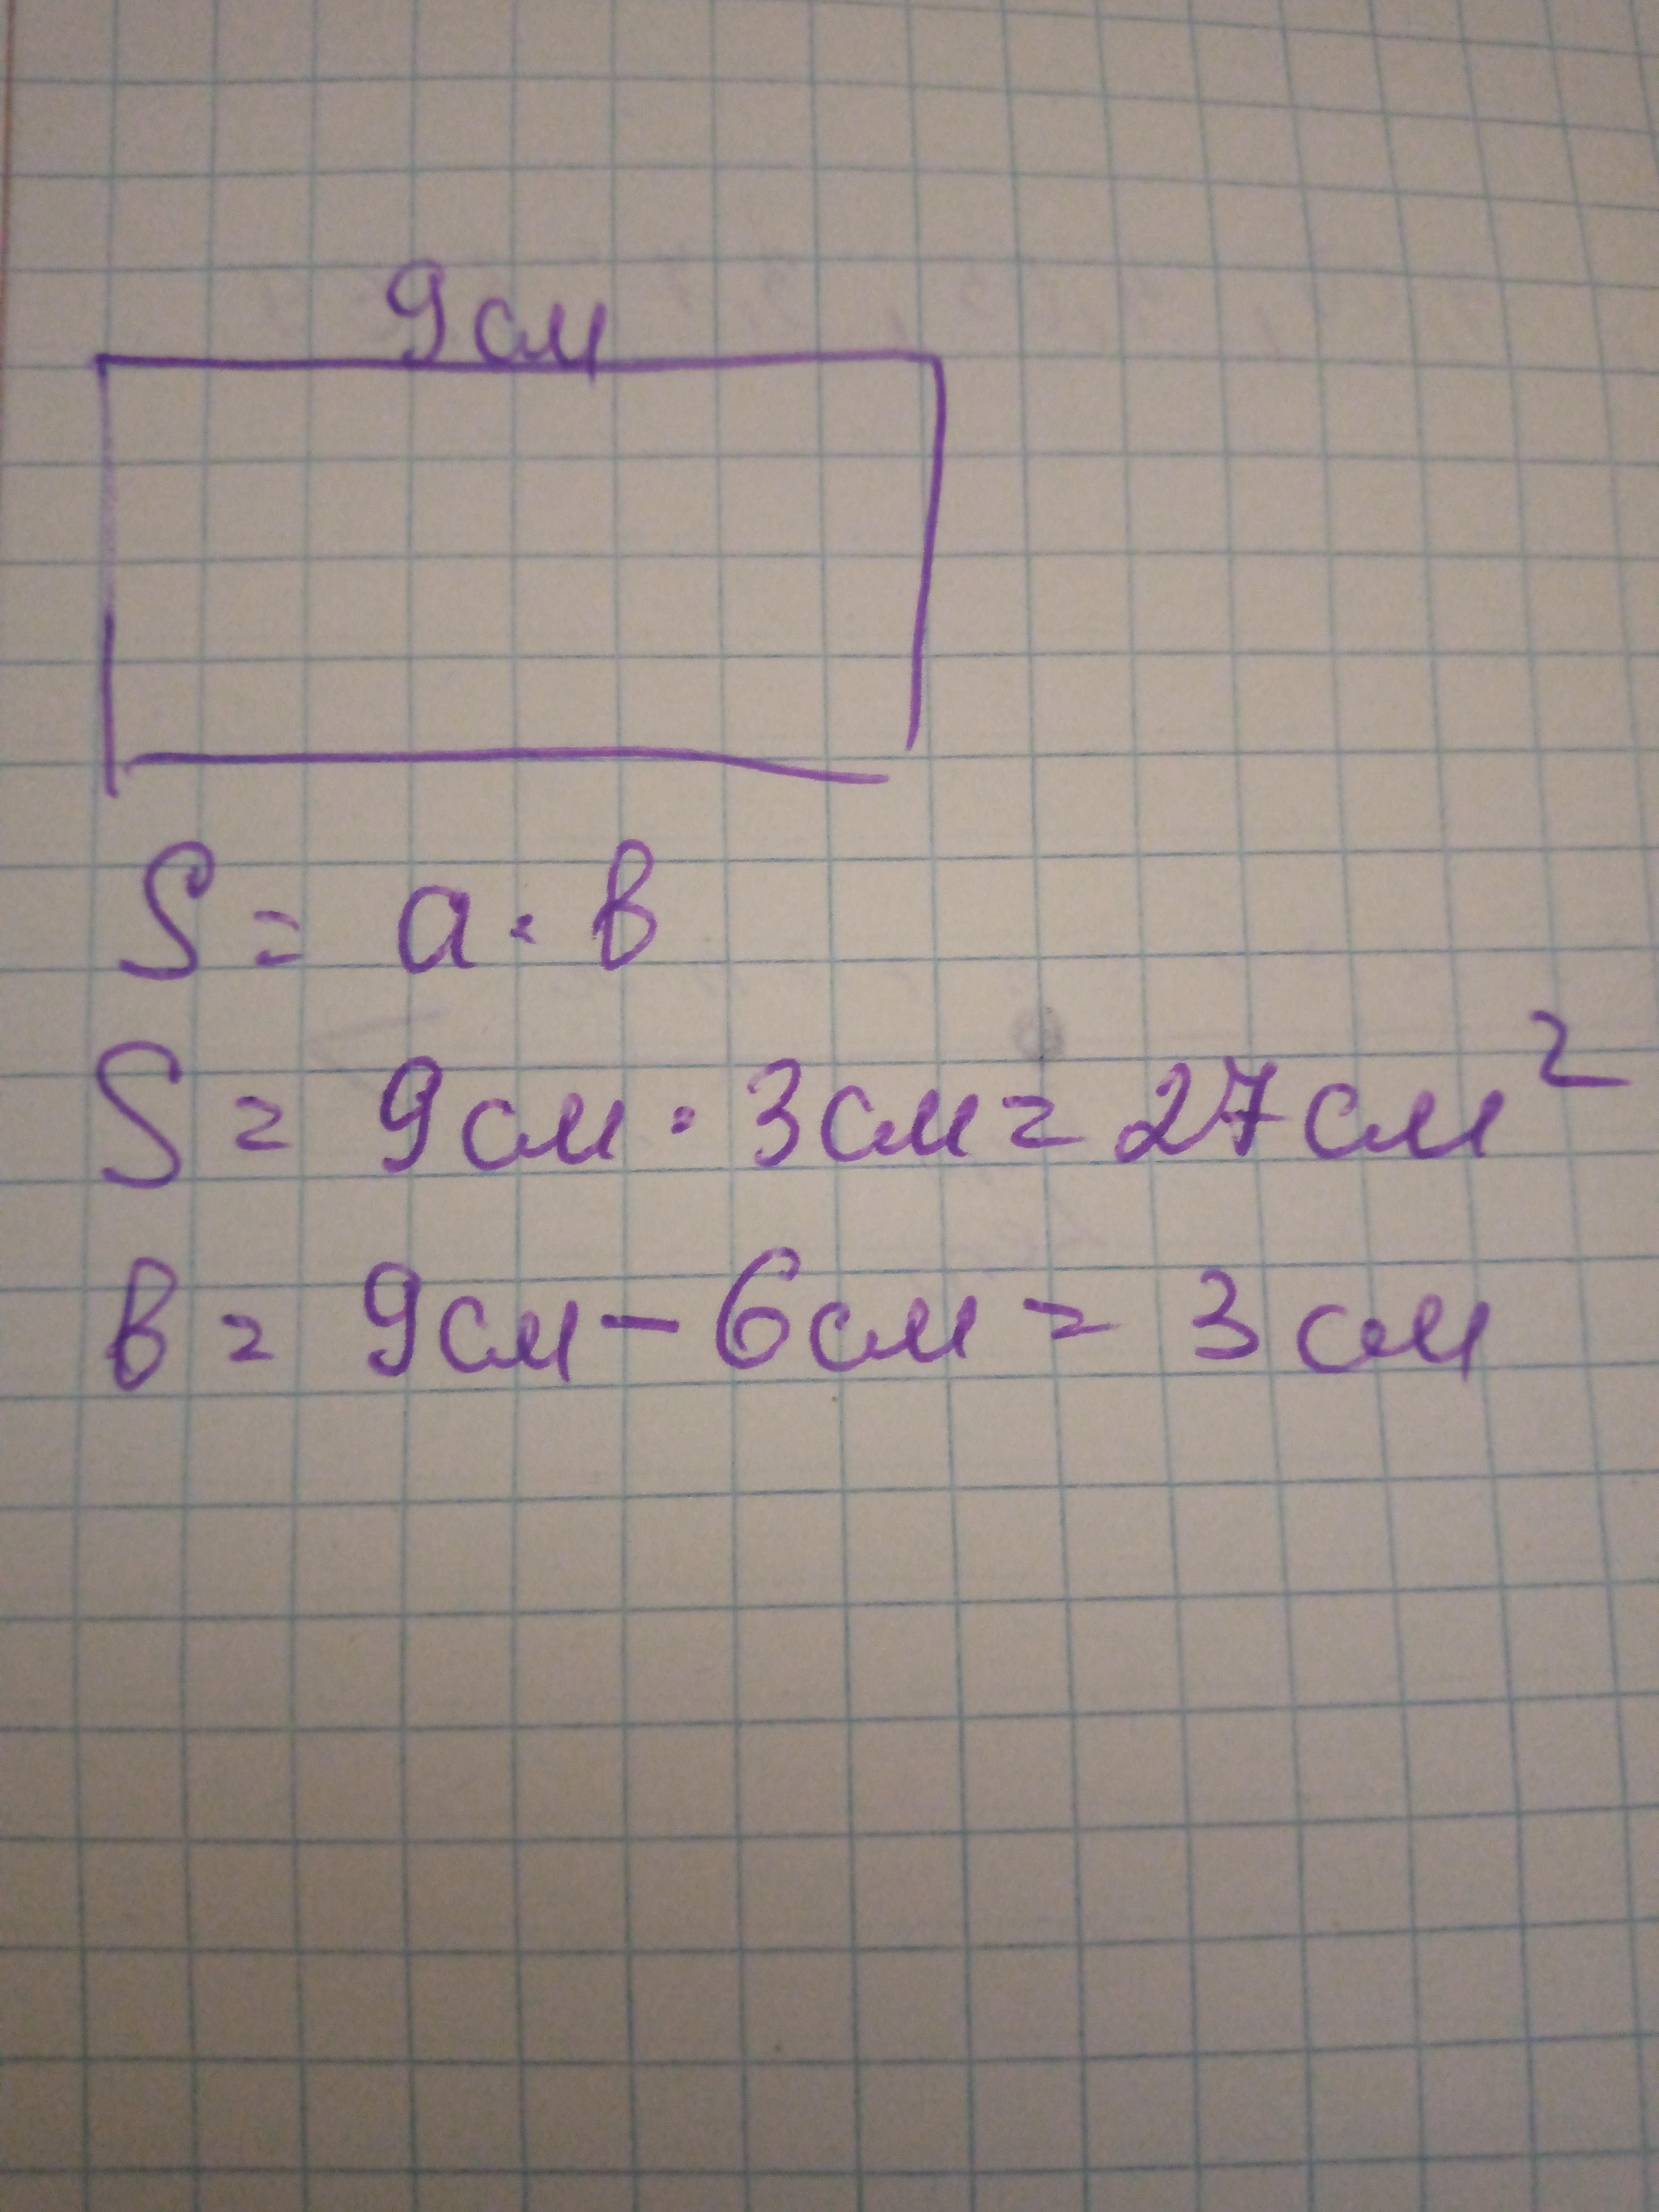 9см
S = a · в
S = 9см · 3см = 27см²
в = 9см - 6см = 3см